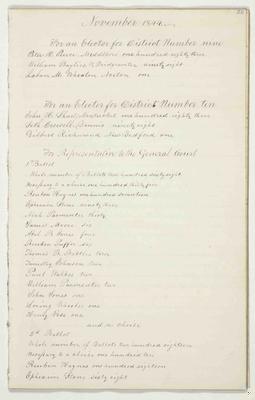 November 1844.
For an Elector for District Number nine
one hundred eighty three
William Baylies W. Bridgewater ninety eight
Laban M. Wheaton Norton one
For an Elector for District Number ten
John H. Shaw Nantucket one hundred eighty three
Seth Crowell Dennis ninety eight
Gilbert Richmond New Bedford one
For Representative to the General Court
1st Ballot
Whole number of Ballots two hundred sixty eight
Necessary to a choice one hundred thirty five
Reuben Haynes one hundred seventeen
Ephraim Stone ninety three
Noah Parmenter thirty
James Moore six
Abel B. Jones four
Reuben Puffer six
Thomas P. two
Timothy Johnson two
Paul Walker two
William Parmenter two
John Jones one
Loring Wheeler one
Henly Vose one
and no choice
2d Ballot
Whole number of Ballots two hundred eighteen
Necessary to a choice one hundred ten
Reuben Haynes one hundred eighteen
Ephraim Stone sixty eight